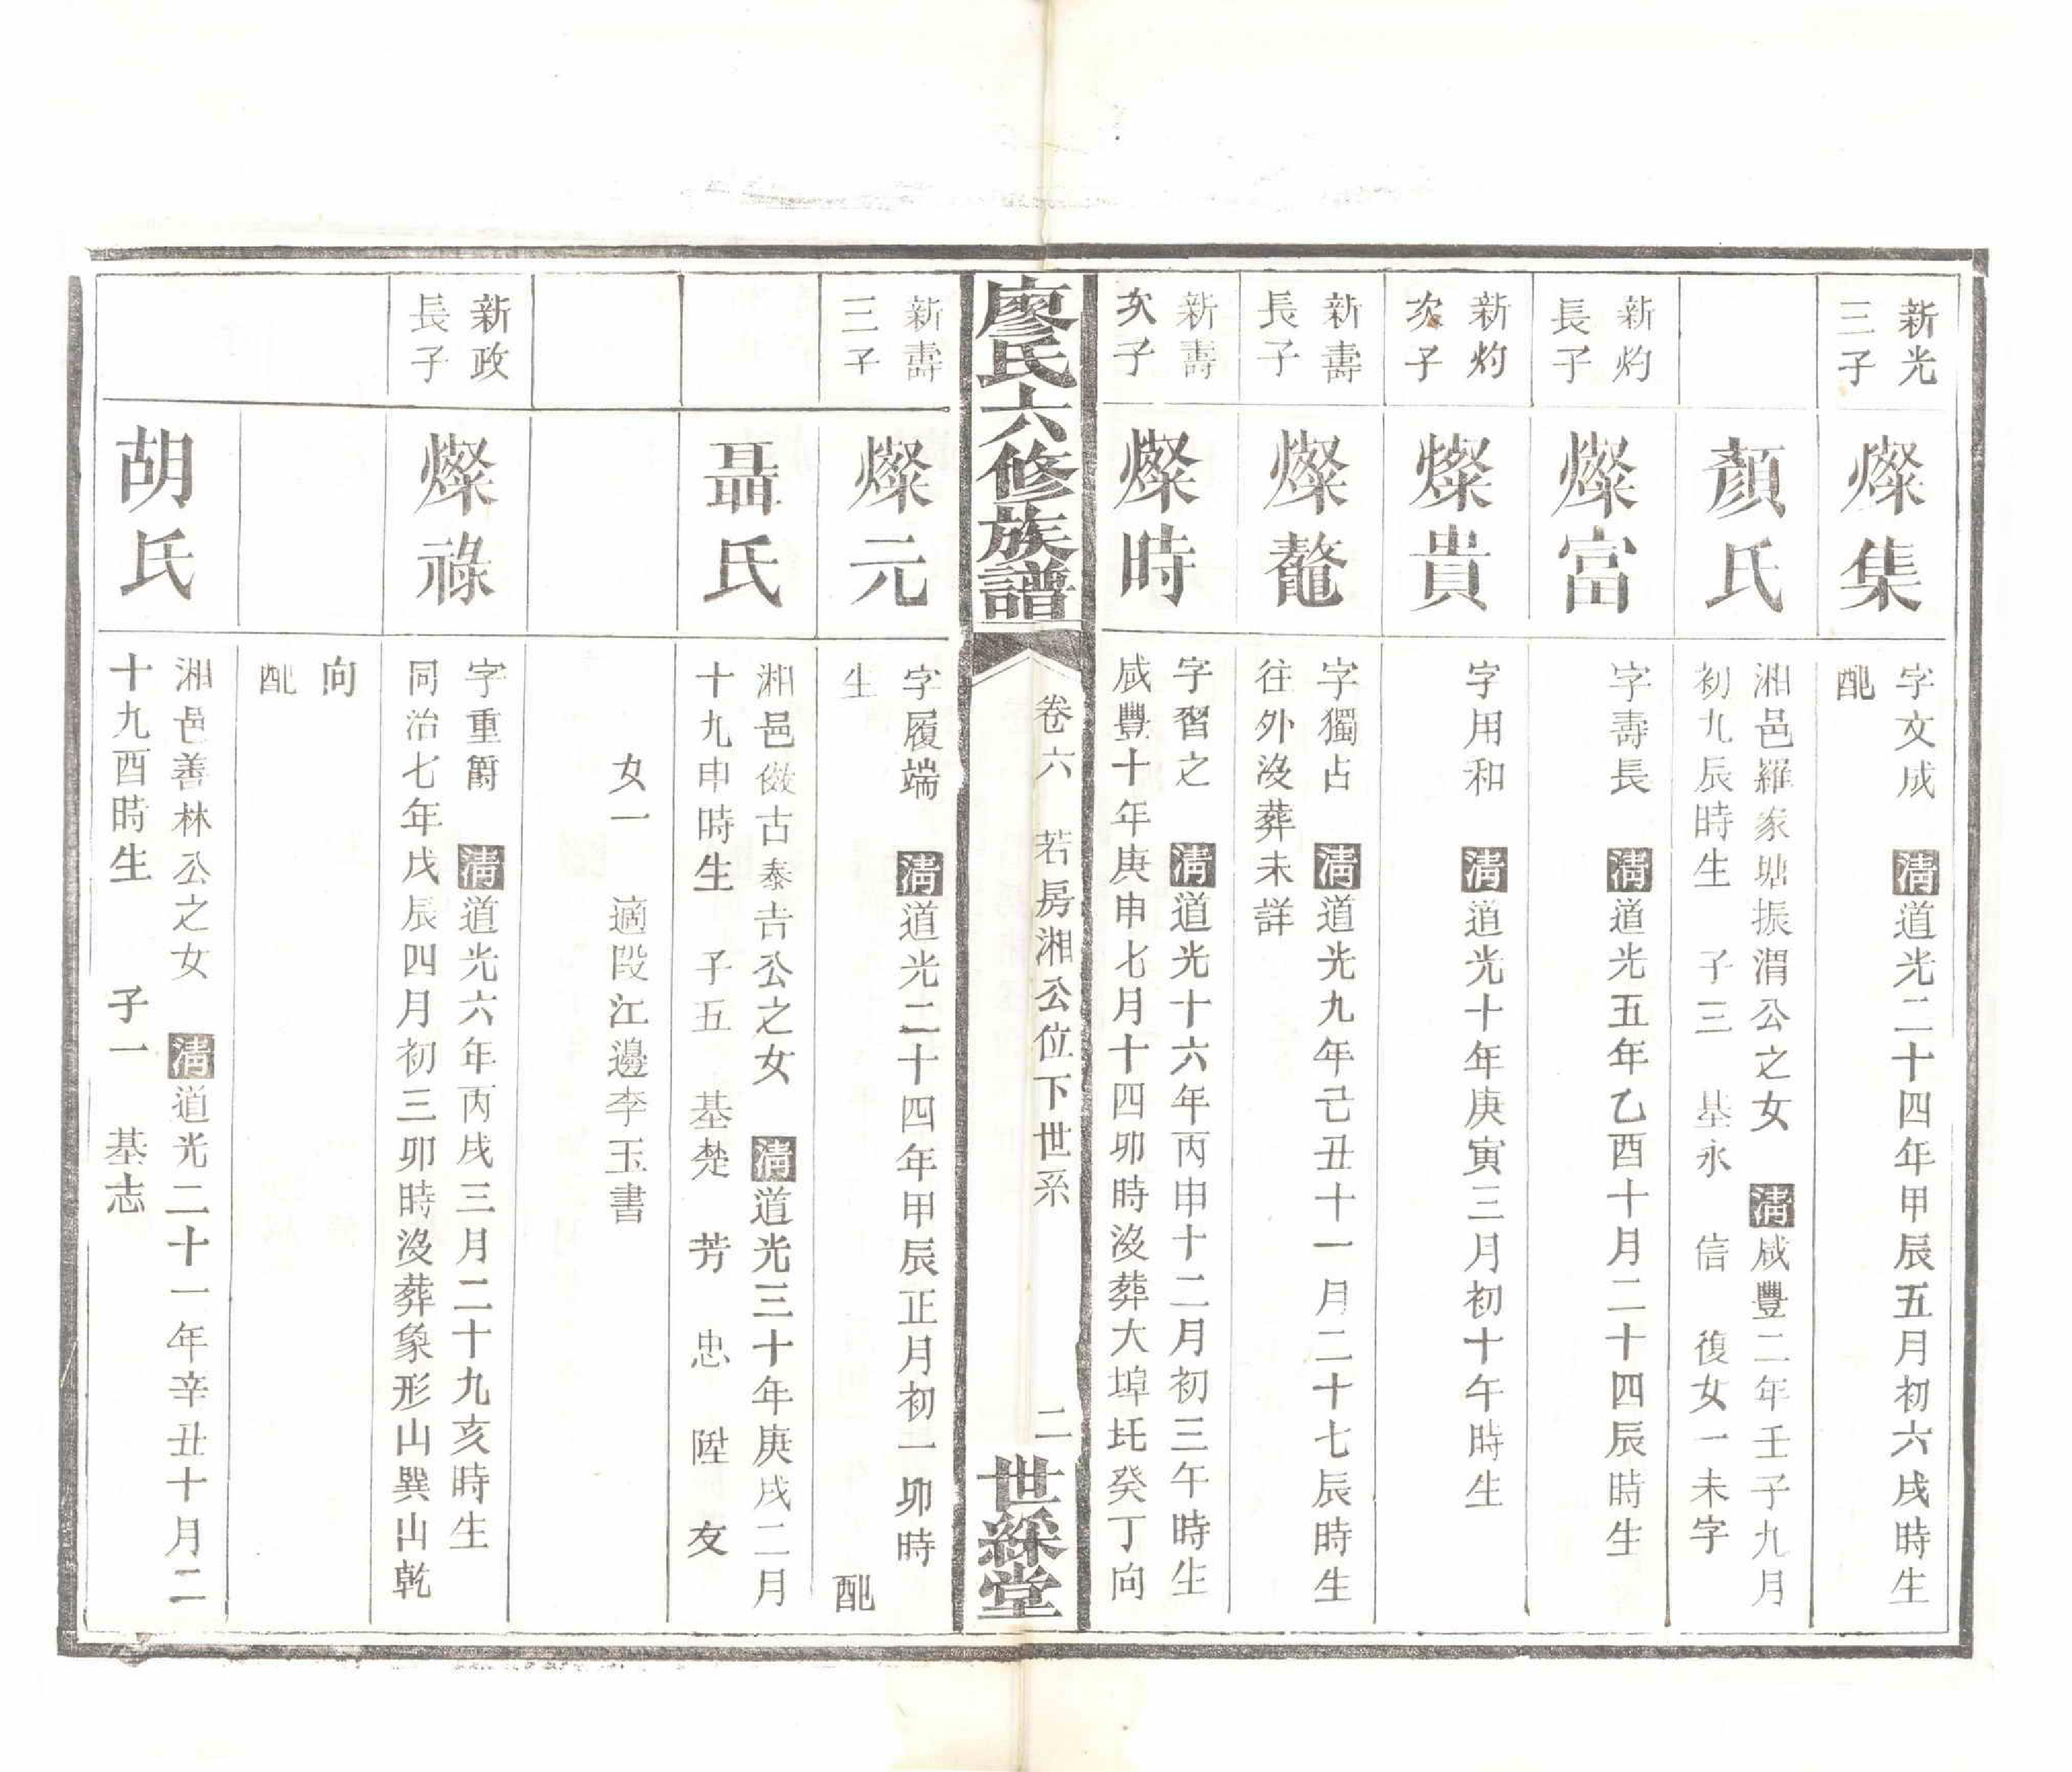 新光
三子
燦集
字文成 清道光二十四年甲辰五月初六戌時生
配
顏氏
湘邑羅家塘振渭公之女 清咸豐二年壬子九月
初九辰時生 子三 基永 信 復女一未字
新灼
長子
燦富
字壽長 清道光五年乙酉十月二十四辰時生
新灼
次子
燦貴
字用和 清道光十年庚寅三月初十午時生
新壽
長子
燦鼇
字獨占 清道光九年己丑十一月二十七辰時生
往外沒葬未詳
新壽
次子
燦時
字習之 清道光十六年丙申十二月初三午時生
咸豐十年庚申七月十四卯時沒葬大埠圫癸丁向
廖氏六修族譜
卷六 若房湘公位下世系 二
世綵堂
新壽
三子
燦元
字履端 清道光二十四年甲辰正月初一卯時
生 配
聶氏
湘邑儌古泰吉公之女 清道光三十年庚戌二月
十九申時生 子五 基楚 芳 忠 陞 友
女一 適段江邊李玉書
新政
長子
燦祿
字重爵 清道光六年丙戌三月二十九亥時生
同治七年戊辰四月初三卯時沒葬象形山巽山乾
向
配
胡氏
湘邑善林公之女 清道光二十一年辛丑十月二
十九酉時生 子一 基志